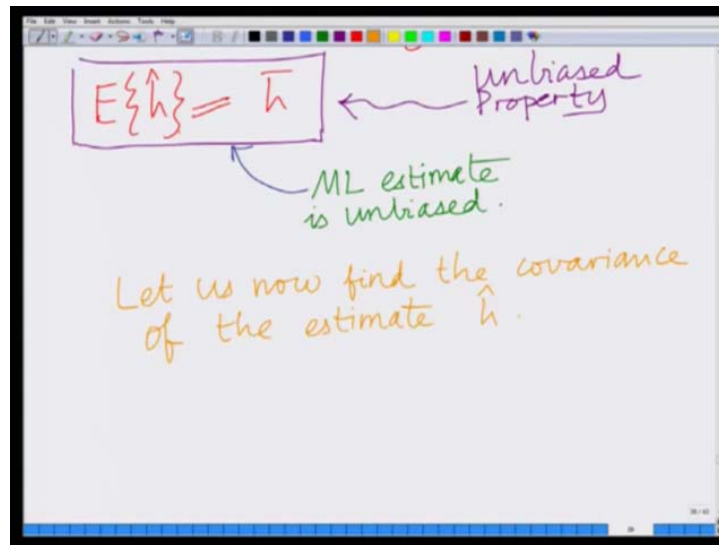 File Edit View Insert Actions Tools Help
E{ĥ} = h̄
unbiased
Property
ML estimate
is unbiased.
Let us now find the covariance
of the estimate ĥ.